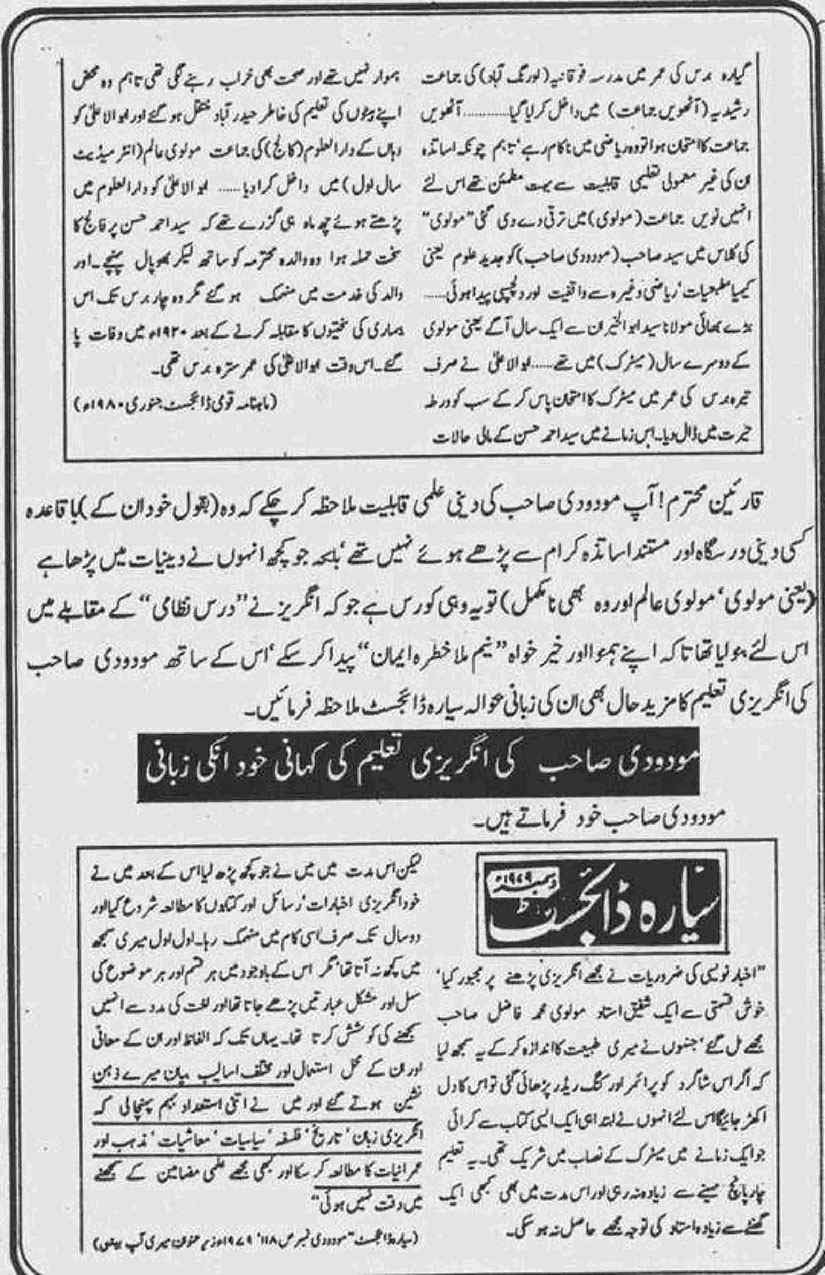 گیارہ برس کی عمر میں مدرسہ فوقانیہ (اورنگ آباد) کی جماعت
رشیدیہ (آٹھویں جماعت) میں داخل کرلیا گیا..........آٹھویں
جماعت کا امتحان ہوا تو وہ ریاضی میں ناکام رہے' تاہم چونکہ اساتذہ
ان کی غیر معمولی تعلیمی قابلیت سے بہت مطمئن تھے اس لئے
انہیں نویں جماعت (مولوی) میں ترقی دے دی گئی "مولوی"
کی کلاس میں سید صاحب (مودودی صاحب) کو جدید علوم یعنی
کیمیا' طبعیات' ریاضی وغیرہ سے واقفیت اور دلچسپی پیدا ہوئی.....
بڑے بھائی مولانا سید ابو الخیر ان سے ایک سال آگے یعنی مولوی
کے دوسرے سال (میٹرک) میں تھے.....ابو الاعلیٰ نے صرف
تیرہ برس کی عمر میں میٹرک کا امتحان پاس کر کے سب کو ورطہ
حیرت میں ڈال دیا۔ اس زمانے میں سید احمد حسن کے مالی حالات
ہموار نہیں تھے اور صحت بھی خراب رہنے لگی تھی تاہم وہ محض
اپنے بیٹوں کی تعلیم کی خاطر حیدر آباد منتقل ہو گئے اور ابو الاعلیٰ کو
وہاں کے دار العلوم (کالج) کی جماعت مولوی عالم (انٹر میڈیٹ
سال اول) میں داخل کرا دیا...... ابو الاعلیٰ کو دار العلوم میں
پڑھتے ہوئے چھ ماہ ہی گزرے تھے کہ سید احمد حسن پر فالج کا
سخت حملہ ہوا وہ والدہ محترمہ کو ساتھ لیکر بھوپال پہنچے۔ اور
والد کی خدمت میں منہمک ہو گئے مگر وہ چار برس تک اس
بیماری کی سختیوں کا مقابلہ کرنے کے بعد ۱۹۲۰ء میں وفات پا
گئے۔ اس وقت ابو الاعلیٰ کی عمر سترہ برس تھی۔
(ماہنامہ قومی ڈائجسٹ جنوری ۱۹۸۰ء)
قارئین محترم! آپ مودودی صاحب کی دینی علمی قابلیت ملاحظہ کر چکے کہ وہ (بقول خود ان کے) باقاعدہ
کسی دینی درسگاہ اور مستند اساتذہ کرام سے پڑھے ہوئے نہیں تھے' بلکہ جو کچھ انہوں نے دینیات میں پڑھا ہے
(یعنی مولوی' مولوی عالم اور وہ بھی نامکمل) تو یہ وہی کورس ہے جو کہ انگریز نے "درس نظامی" کے مقابلے میں
اس لئے بنوایا تھا تاکہ اپنے ہمنوا اور خیر خواہ "نیم ملا خطرہ ایمان" پیدا کر سکے' اس کے ساتھ مودودی صاحب
کی انگریزی تعلیم کا مزید حال بھی ان کی زبانی بحوالہ سیارہ ڈائجسٹ ملاحظہ فرمائیں۔
مودودی صاحب کی انگریزی تعلیم کی کہانی خود انکی زبانی
مودودی صاحب خود فرماتے ہیں۔
سیارہ ڈائجسٹ
دسمبر ۱۹۷۹ء
"اخبار نویسی کی ضروریات نے مجھے انگریزی پڑھنے پر مجبور کیا'
خوش قسمتی سے ایک شفیق استاد مولوی محمد فاضل صاحب
مجھے مل گئے' جنہوں نے میری طبیعت کا اندازہ کر کے یہ سمجھ لیا
کہ اگر اس شاگرد کو پرائمر اور کنگ ریڈر پڑھائی گئی تو اس کا دل
اکھڑ جائیگا اس لئے انہوں نے ابتدا ہی ایک ایسی کتاب سے کرائی
جو ایک زمانے میں میٹرک کے نصاب میں شریک تھی۔ یہ تعلیم
چار پانچ مہینے سے زیادہ نہ رہی اور اس مدت میں بھی کبھی ایک
گھنٹے سے زیادہ استاد کی توجہ مجھے حاصل نہ ہو سکی۔
لیکن اس مدت میں میں نے جو کچھ پڑھ لیا اس کے بعد میں نے
خود انگریزی اخبارات' رسائل اور کتابوں کا مطالعہ شروع کیا اور
دو سال تک صرف اسی کام میں منہمک رہا۔ اول اول میری سمجھ
میں کچھ نہ آتا تھا' مگر اس کے باوجود میں ہر قسم اور ہر موضوع کی
سہل اور مشکل عبارتیں پڑھے جاتا تھا اور لغت کی مدد سے انہیں
سمجھنے کی کوشش کرتا تھا۔ یہاں تک کہ الفاظ اور ان کے معانی
اور ان کے محل استعمال اور مختلف اسالیب بیان میرے ذہن
نشین ہوتے گئے اور میں نے اتنی استعداد بہم پہنچالی کہ
انگریزی زبان' تاریخ' فلسفہ' سیاسیات' معاشیات' مذہب اور
عمرانیات کا مطالعہ کر سکا اور کبھی مجھے علمی مضامین کے سمجھنے
میں دقت نہیں ہوئی"
(سیارہ ڈائجسٹ" مودودی نمبر ص ۱۱۸' ۱۹۷۹ء زیر عنوان میری آپ بیتی)